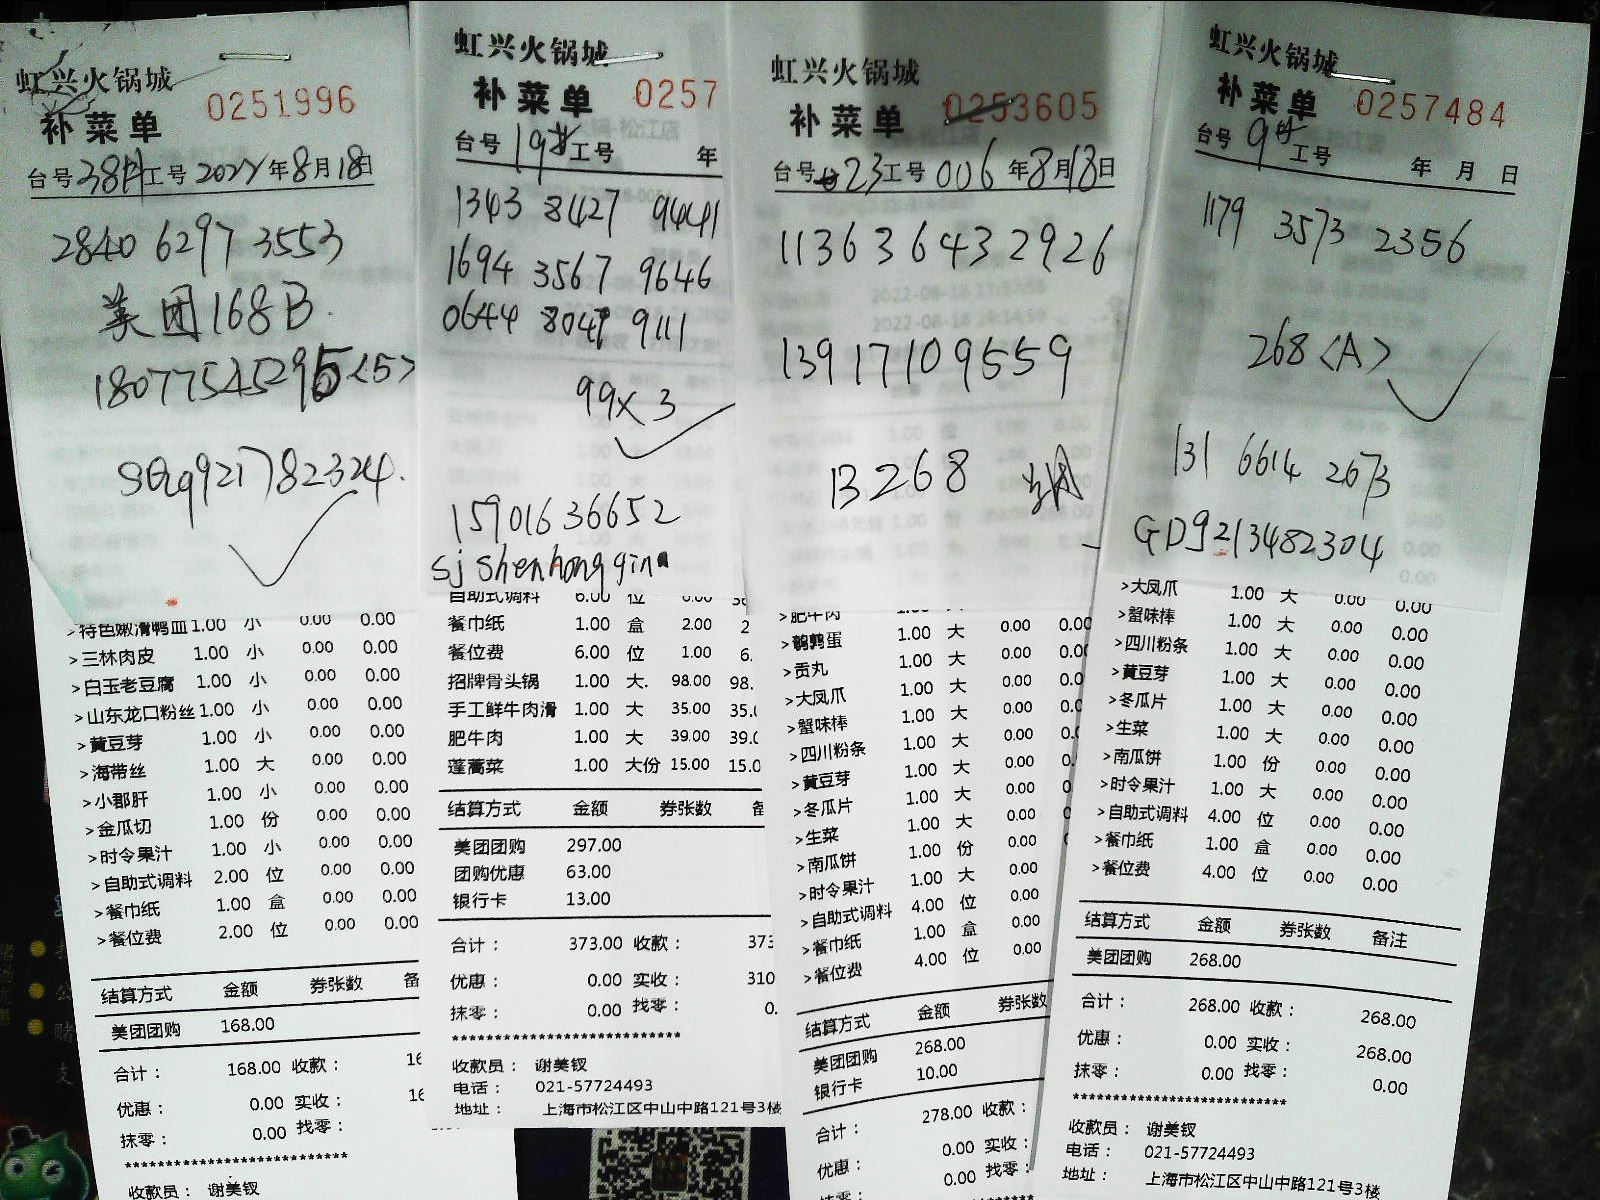 虹兴火锅城
补菜单 0251996
台号 38 工号 2022 年 8 月 18 日
2840 6297 3553
美团168B
18077545295<5>
9217782324.
>特色嫩滑鸭血 1.00 小 0.00 0.00
>三林肉皮 1.00 小 0.00 0.00
>白玉老豆腐 1.00 小 0.00 0.00
>山东龙口粉丝 1.00 小 0.00 0.00
>黄豆芽 1.00 小 0.00 0.00
>海带丝 1.00 大 0.00 0.00
>小郡肝 1.00 小 0.00 0.00
>金瓜切 1.00 份 0.00 0.00
>时令果汁 1.00 小 0.00 0.00
>自助式调料 2.00 位 0.00 0.00
>餐巾纸 1.00 盒 0.00 0.00
>餐位费 2.00 位 0.00 0.00
结算方式 金额 券张数 备
美团团购 168.00
合计： 168.00 收款： 16
优惠： 0.00 实收： 16
抹零： 0.00 找零：
***************************
收款员： 谢美钗
虹兴火锅城
补菜单 0257
台号 19 工号 年
1343 8427 9441
1694 3567 9646
0644 8047 9111
99×3
15901636652
sj shenhongqin
自助式调料 6.00 位 0.00
餐巾纸 1.00 盒 2.00 2
餐位费 6.00 位 1.00 6.
招牌骨头锅 1.00 大. 98.00 98.
手工鲜牛肉滑 1.00 大 35.00 35.
肥牛肉 1.00 大 39.00 39.
蓬蒿菜 1.00 大份 15.00 15.0
结算方式 金额 券张数 备
美团团购 297.00
团购优惠 63.00
银行卡 13.00
合计： 373.00 收款： 373
优惠： 0.00 实收： 310
抹零： 0.00 找零： 0.
***************************
收款员： 谢美钗
电话： 021-57724493
地址： 上海市松江区中山中路121号3楼
虹兴火锅城
补菜单 0253605
台号 23 工号 006 年 8 月 18 日
1136 3643 2926
13917109559
B268
>肥牛肉 1.00 大 0.00
>鹌鹑蛋 1.00 大 0.00 0.00
>贡丸 1.00 大 0.00 0.00
>大凤爪 1.00 大 0.00 0.0
>蟹味棒 1.00 大 0.00 0.0
>四川粉条 1.00 大 0.00 0.
>黄豆芽 1.00 大 0.00 0.
>冬瓜片 1.00 大 0.00 0
>生菜 1.00 大 0.00
>南瓜饼 1.00 份 0.00
>时令果汁 1.00 大 0.00
>自助式调料 4.00 位 0.00
>餐巾纸 1.00 盒 0.00
>餐位费 4.00 位 0.00
结算方式 金额 券张数
美团团购 268.00
银行卡 10.00
合计： 278.00 收款：
优惠： 0.00 实收：
抹零： 0.00 找零：
虹兴火锅城
补菜单 0257484
台号 9 工号 年 月 日
1179 3573 2356
268<A>
131 6614 2673
GD9213482304
>大凤爪 1.00 大 0.00 0.00
>蟹味棒 1.00 大 0.00 0.00
>四川粉条 1.00 大 0.00 0.00
>黄豆芽 1.00 大 0.00 0.00
>冬瓜片 1.00 大 0.00 0.00
>生菜 1.00 大 0.00 0.00
>南瓜饼 1.00 份 0.00 0.00
>时令果汁 1.00 大 0.00 0.00
>自助式调料 4.00 位 0.00 0.00
>餐巾纸 1.00 盒 0.00 0.00
>餐位费 4.00 位 0.00 0.00
结算方式 金额 券张数 备注
美团团购 268.00
合计： 268.00 收款： 268.00
优惠： 0.00 实收： 268.00
抹零： 0.00 找零： 0.00
***************************
收款员： 谢美钗
电话： 021-57724493
地址： 上海市松江区中山中路121号3楼